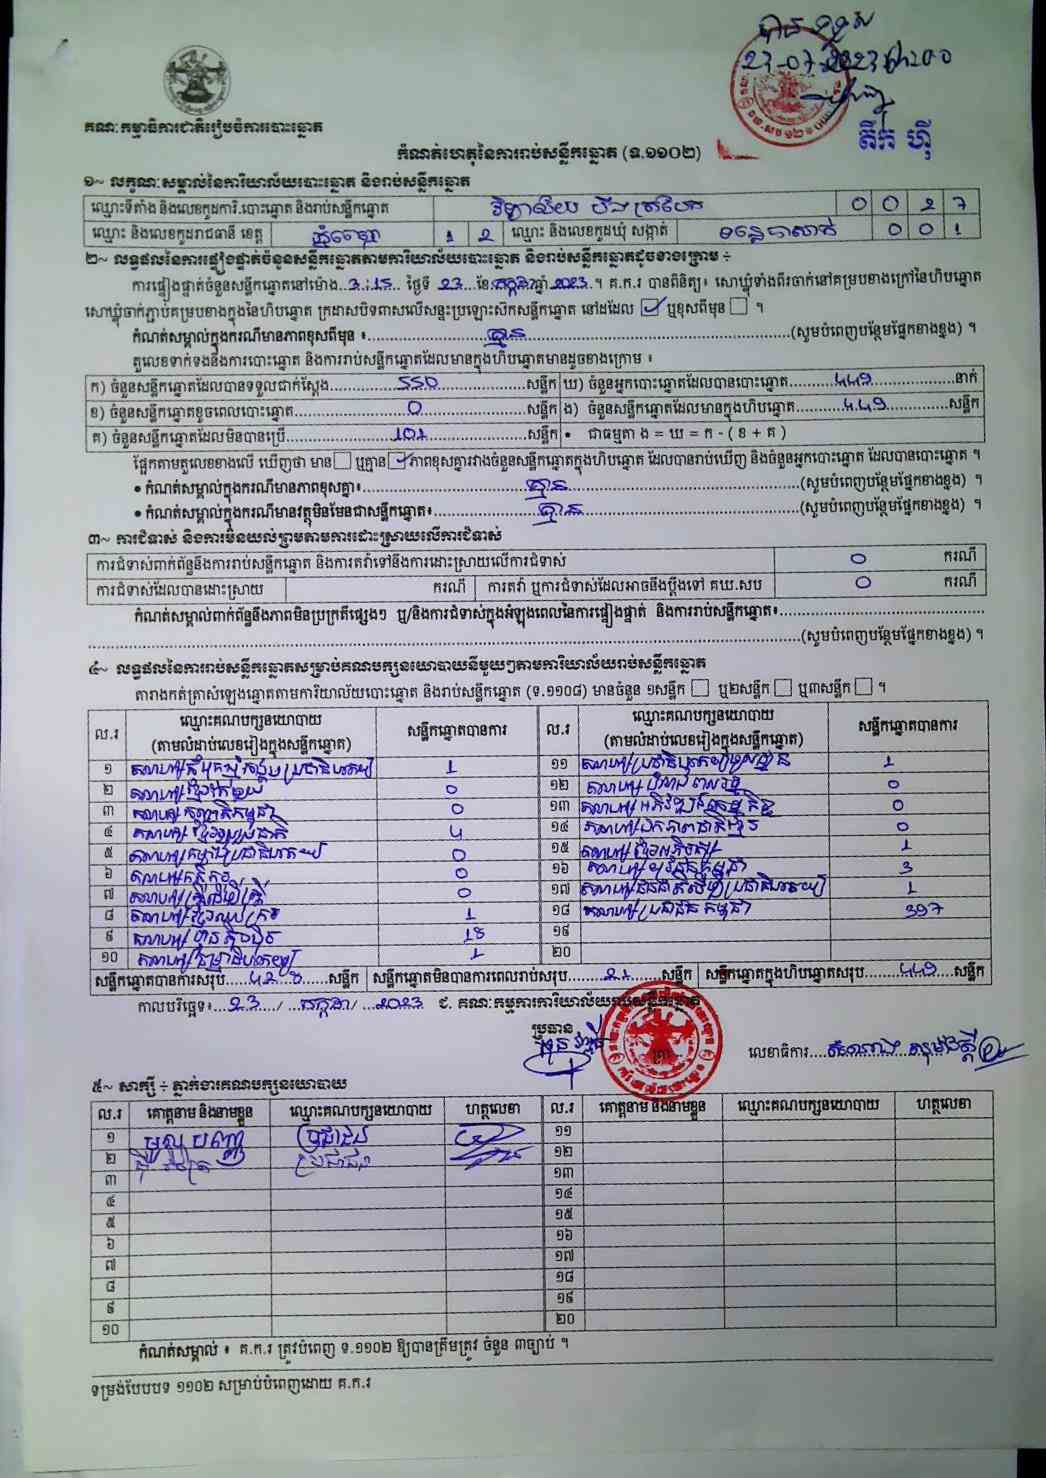 បានទទួល
23-07-2023
តឹក ហ៊ី
គណៈកម្មាធិការជាតិរៀបចំការបោះឆ្នោត
កំណត់ហេតុនៃការរាប់សន្លឹកឆ្នោត (ទ.១១០២)
១~ លក្ខណៈសម្គាល់នៃការិយាល័យបោះឆ្នោត និងរាប់សន្លឹកឆ្នោត
ឈ្មោះទីតាំង និងលេខកូដការិ.បោះឆ្នោត និងរាប់សន្លឹកឆ្នោត វិទ្យាល័យ បឹងត្របែក 0 0 2 7
ឈ្មោះ និងលេខកូដរាជធានី ខេត្ត ភ្នំពេញ 1 2 ឈ្មោះ និងលេខកូដឃុំ សង្កាត់ ទន្លេបាសាក់ 0 0 1
២~ លទ្ធផលនៃការផ្ទៀងផ្ទាត់ចំនួនសន្លឹកឆ្នោតតាមការិយាល័យបោះឆ្នោត និងរាប់សន្លឹកឆ្នោតដូចខាងក្រោម ÷
ការផ្ទៀងផ្ទាត់ចំនួនសន្លឹកឆ្នោតនៅម៉ោង..3:15 ថ្ងៃទី 23 ខែ កក្កដា ឆ្នាំ 2023 ។ គ.ក.រ បានពិនិត្យ៖ សោឃ្លុំទាំងពីរចាក់នៅគម្របខាងក្រៅនៃហិបឆ្នោត
សោឃ្លុំចាក់ភ្ជាប់គម្របខាងក្នុងនៃហិបឆ្នោត ក្រដាសបិទពាសលើសន្ទះប្រឡោះស៊កសន្លឹកឆ្នោត នៅដដែល ☑ ឬខុសពីមុន ☐ ។
កំណត់សម្គាល់ក្នុងករណីមានភាពខុសពីមុន ៖ គ្មាន (សូមបំពេញបន្ថែមផ្នែកខាងខ្នង) ។
តួលេខទាក់ទងនឹងការបោះឆ្នោត និងការរាប់សន្លឹកឆ្នោតដែលមានក្នុងហិបឆ្នោតមានដូចខាងក្រោម ៖
ក) ចំនួនសន្លឹកឆ្នោតដែលបានទទួលជាក់ស្តែង 550 សន្លឹក ឃ) ចំនួនអ្នកបោះឆ្នោតដែលបានបោះឆ្នោត 449 នាក់
ខ) ចំនួនសន្លឹកឆ្នោតខូចពេលបោះឆ្នោត 0 សន្លឹក ង) ចំនួនសន្លឹកឆ្នោតដែលមានក្នុងហិបឆ្នោត 449 សន្លឹក
គ) ចំនួនសន្លឹកឆ្នោតដែលមិនបានប្រើ 101 សន្លឹក • ជាធម្មតា ង = ឃ = ក - ( ខ + គ )
ផ្អែកតាមតួលេខខាងលើ ឃើញថា មាន ☐ ឬគ្មាន ☑ ភាពខុសគ្នារវាងចំនួនសន្លឹកឆ្នោតក្នុងហិបឆ្នោត ដែលបានរាប់ឃើញ និងចំនួនអ្នកបោះឆ្នោត ដែលបានបោះឆ្នោត ។
• កំណត់សម្គាល់ក្នុងករណីមានភាពខុសគ្នា៖ គ្មាន (សូមបំពេញបន្ថែមផ្នែកខាងខ្នង) ។
• កំណត់សម្គាល់ក្នុងករណីមានវត្ថុមិនមែនជាសន្លឹកឆ្នោត៖ គ្មាន (សូមបំពេញបន្ថែមផ្នែកខាងខ្នង) ។
៣~ ការជំទាស់ និងការមិនយល់ព្រមតាមការដោះស្រាយលើការជំទាស់
ការជំទាស់ពាក់ព័ន្ធនឹងការរាប់សន្លឹកឆ្នោត និងការតវ៉ាទៅនឹងការដោះស្រាយលើការជំទាស់ 0 ករណី
ការជំទាស់ដែលបានដោះស្រាយ ករណី ការតវ៉ា ឬការជំទាស់ដែលអាចនឹងប្តឹងទៅ គឃ.សប 0 ករណី
កំណត់សម្គាល់ពាក់ព័ន្ធនឹងភាពមិនប្រក្រតីផ្សេងៗ ឬ/និងការជំទាស់ក្នុងអំឡុងពេលនៃការផ្ទៀងផ្ទាត់ និងការរាប់សន្លឹកឆ្នោត៖
(សូមបំពេញបន្ថែមផ្នែកខាងខ្នង) ។
៤~ លទ្ធផលនៃការរាប់សន្លឹកឆ្នោតសម្រាប់គណបក្សនយោបាយនីមួយៗតាមការិយាល័យរាប់សន្លឹកឆ្នោត
តារាងកត់ត្រាសំឡេងឆ្នោតតាមការិយាល័យបោះឆ្នោត និងរាប់សន្លឹកឆ្នោត (ទ.១១០៨) មានចំនួន ១សន្លឹក ☐ ឬ២សន្លឹក ☐ ឬ៣សន្លឹក ☐ ។
ល.រ ឈ្មោះគណបក្សនយោបាយ (តាមលំដាប់លេខរៀងក្នុងសន្លឹកឆ្នោត) សន្លឹកឆ្នោតបានការ ល.រ ឈ្មោះគណបក្សនយោបាយ (តាមលំដាប់លេខរៀងក្នុងសន្លឹកឆ្នោត) សន្លឹកឆ្នោតបានការ
១ គណបក្ស 1 ១១ គណបក្ស 1
២ គណបក្ស ខ្មែររួបរួម 0 ១២ គណបក្ស 0
៣ គណបក្ស 0 ១៣ គណបក្ស 0
៤ គណបក្ស 4 ១៤ គណបក្ស ឯកភាពជាតិខ្មែរ 0
៥ គណបក្ស កម្លាំងប្រជាធិបតេយ្យ 0 ១៥ គណបក្ស 1
៦ គណបក្ស កសិករ 0 ១៦ គណបក្ស យុវជនកម្ពុជា 3
៧ គណបក្ស ស្ត្រីដើម្បីស្ត្រី 0 ១៧ គណបក្ស 1
៨ គណបក្ស 1 ១៨ គណបក្ស ប្រជាជនកម្ពុជា 397
៩ គណបក្ស ហ្វ៊ុនស៊ិនប៉ិច 18 ១៩
១០ គណបក្ស ធម្មាធិបតេយ្យ 1 ២០
សន្លឹកឆ្នោតបានការសរុប 428 សន្លឹក សន្លឹកឆ្នោតមិនបានការពេលរាប់សរុប 21 សន្លឹក សន្លឹកឆ្នោតក្នុងហិបឆ្នោតសរុប 449 សន្លឹក
កាលបរិច្ឆេទ៖ 23 / កក្កដា / 2023 ជ. គណៈកម្មការការិយាល័យរាប់សន្លឹកឆ្នោត
ប្រធាន
លេខាធិការ
៥~ សាក្សី ÷ ភ្នាក់ងារគណបក្សនយោបាយ
ល.រ គោត្តនាម និងនាមខ្លួន ឈ្មោះគណបក្សនយោបាយ ហត្ថលេខា ល.រ គោត្តនាម និងនាមខ្លួន ឈ្មោះគណបក្សនយោបាយ ហត្ថលេខា
១ ប្រជាជន ១១
២ ប្រជាជន ១២
៣ ១៣
៤ ១៤
៥ ១៥
៦ ១៦
៧ ១៧
៨ ១៨
៩ ១៩
១០ ២០
កំណត់សម្គាល់ ៖ គ.ក.រ ត្រូវបំពេញ ទ.១១០២ ឱ្យបានត្រឹមត្រូវ ចំនួន ៣ច្បាប់ ។
ទម្រង់បែបបទ ១១០២ សម្រាប់បំពេញដោយ គ.ក.រ